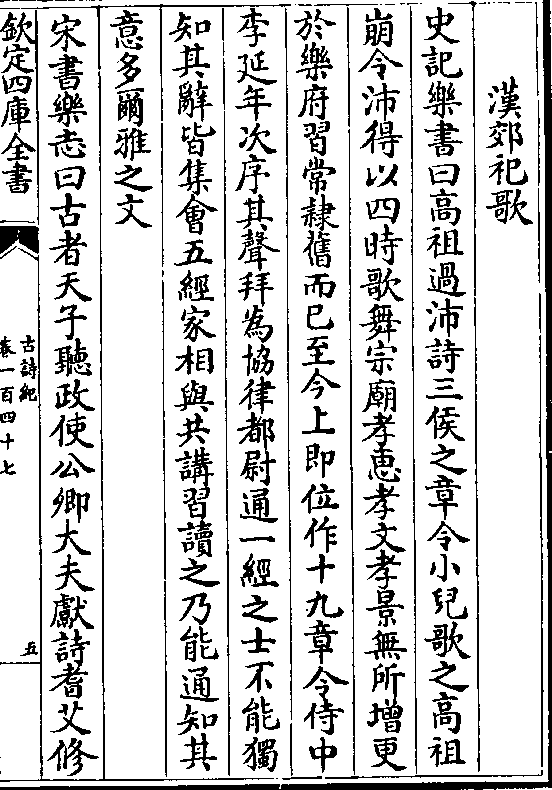 漢郊祀歌
史記樂書曰高祖過沛詩三侯之章令小兒歌之高祖
崩令沛得以四時歌舞宗廟孝惠孝文孝景無所增更
於樂府習常隸舊而已至今上即位作十九章令侍中
李延年次序其聲拜為協律都尉通一經之士不能獨
知其辭皆集會五經家相與共講習讀之乃能通知其
意多爾雅之文
宋書樂志曰古者天子聽政使公卿大夫獻詩耆艾修
欽定四庫全書
古詩紀
卷一百四十七
五